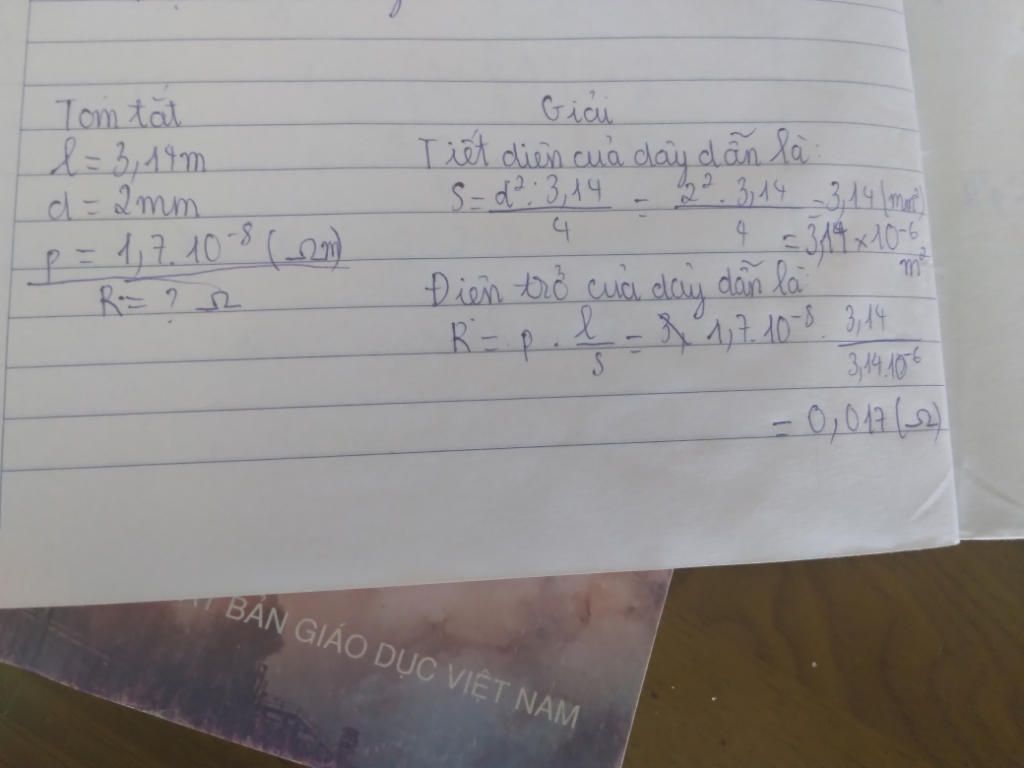 Tóm tắt
l = 3,14m
d = 2mm
p = 1,7.10⁻⁸ (Ωm)
R = ? Ω
Giải
Tiết diện của dây dẫn là:
S = d². 3,14 / 4 = 2². 3,14 / 4 = 3,14 (mm²)
= 3,14 × 10⁻⁶ m²
Điện trở của dây dẫn là:
R = p . l / S = 1,7.10⁻⁸ . 3,14 / 3,14.10⁻⁶
= 0,017 (Ω)
BẢN GIÁO DỤC VIỆT NAM